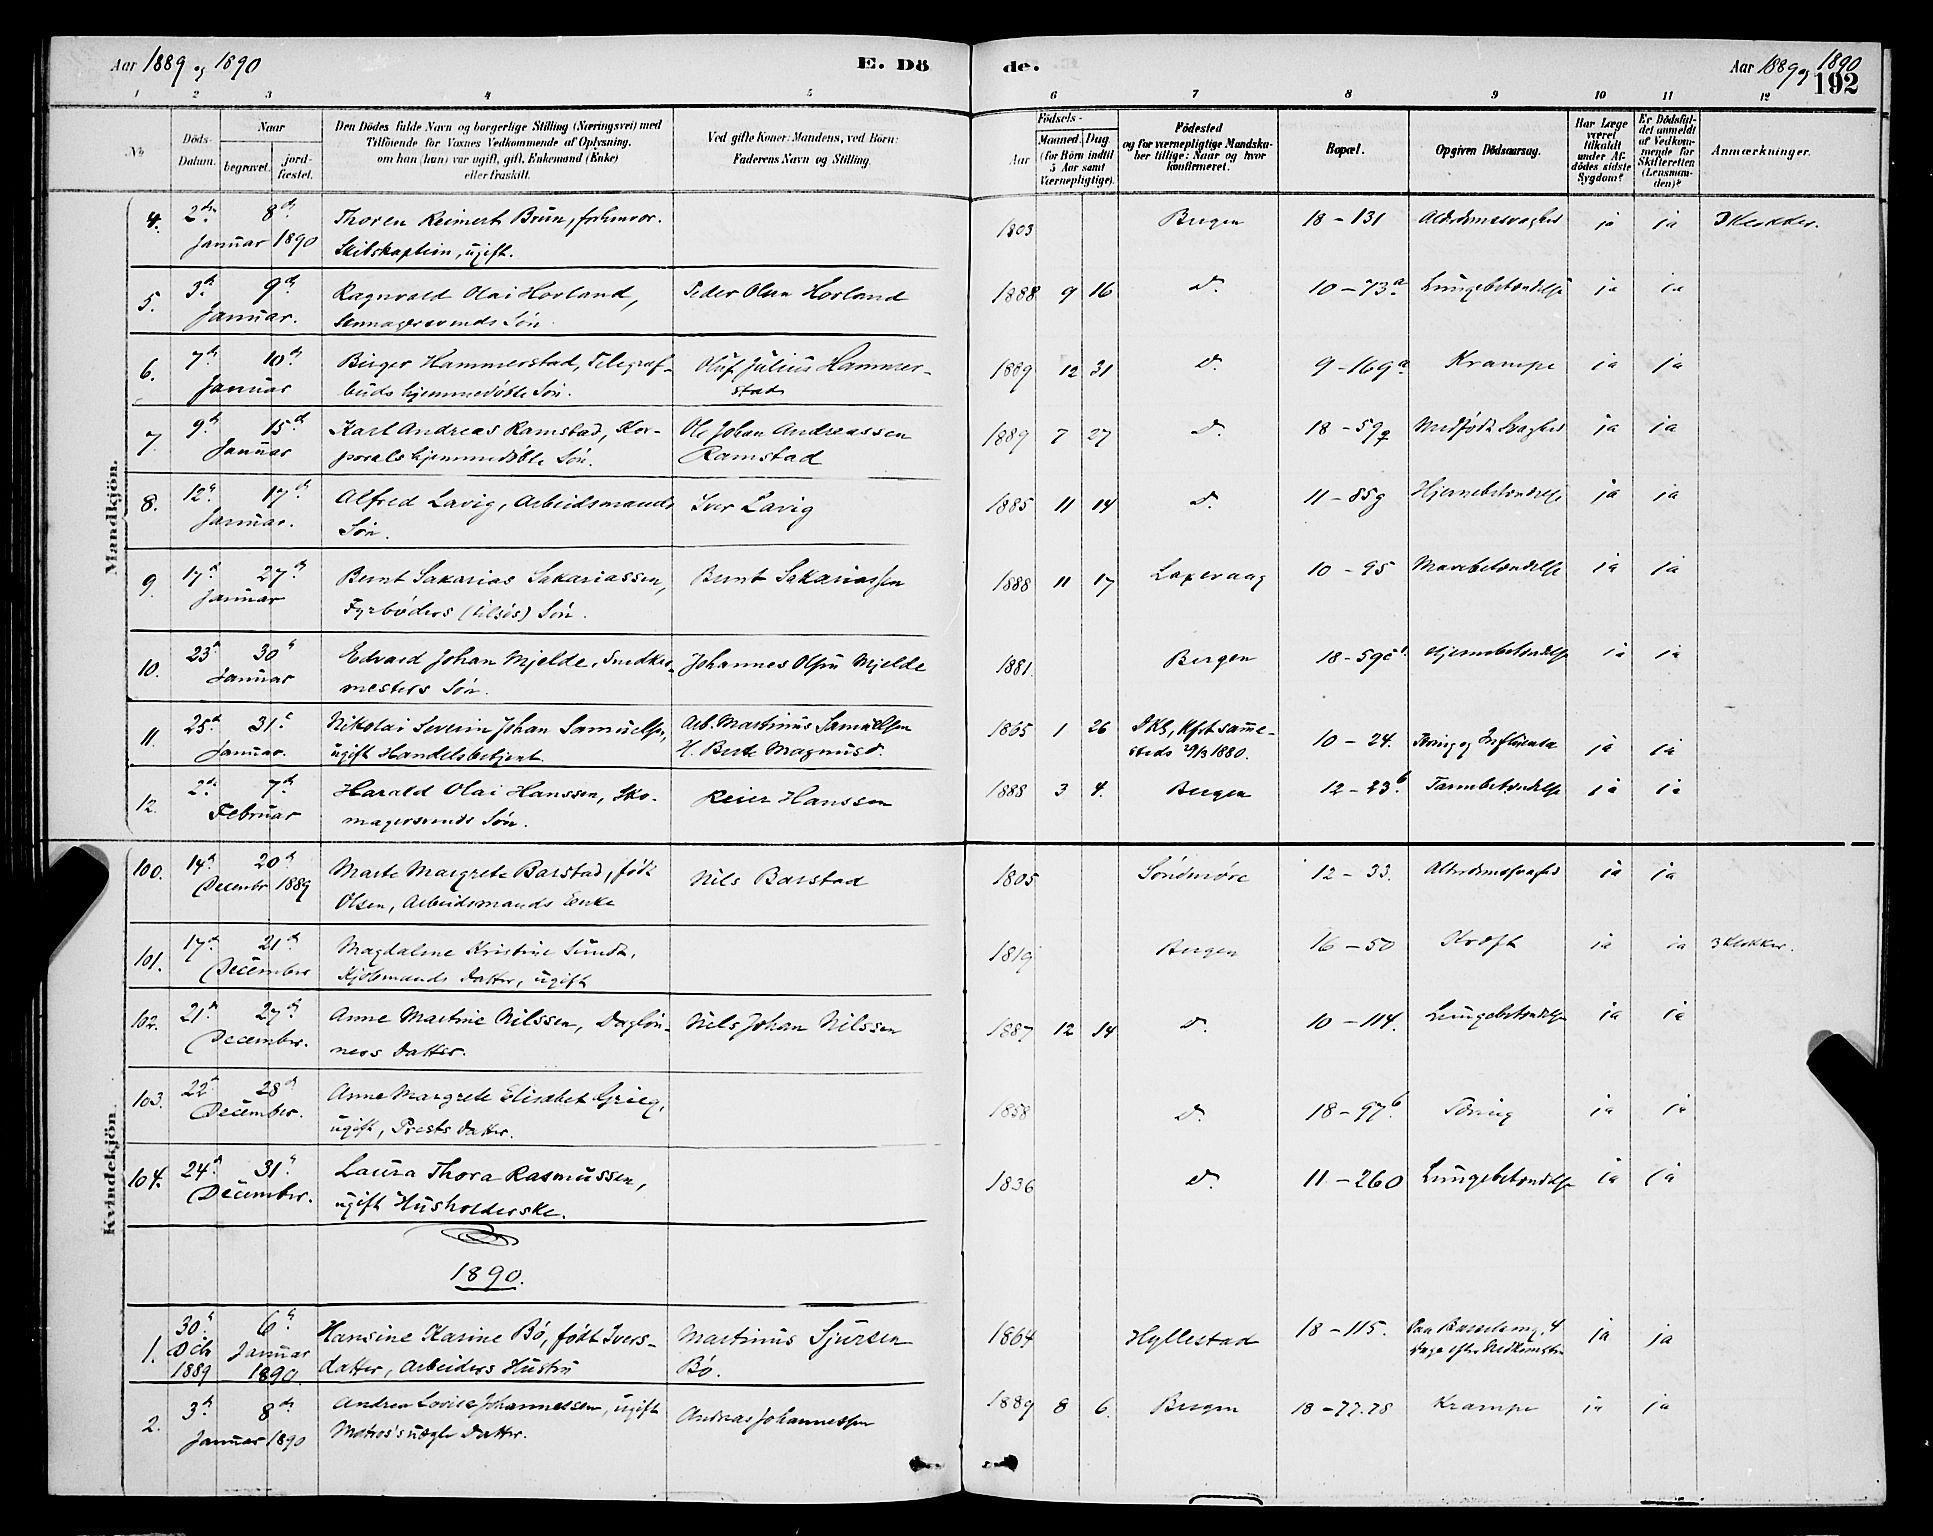 Aar 1889 og 1890
E. Dö
de.
Aar 1889 og 1890
192
1 2 3 4 5 6 7 8 9 10 11 12
No
Döds-Datum.
Naar
begravet.
jordfæstet.
Den Dödes fulde Navn og borgerlige Stilling (Næringsvei) med
Tilföiende for Voxnes Vedkommende af Oplysning,
om han (hun) var ugift, gift, Enkemand (Enke)
eller fraskilt.
Ved gifte Koner: Mandens, ved Börn:
Faderens Navn og Stilling.
Födsels-
Aar
Maaned Dag
(for Börn indtil
5 Aar samt
Værnepligtige).
Födested
og for værnepligtige Mandskaber
tillige: Naar og hvor
konfirmeret.
Bopæl.
Opgiven Dödsaarsag.
Har Læge
været
tilkaldt
under Afdödes
sidste
Sygdom?
Er Dödsfaldet
anmeldt
af Vedkommende
for
Skifteretten
(Lensmanden)?
Anmærkninger.
Mandkjön.
4. 2den 8de Thoren Reimert Brun, forhenvær. 1803 Bergen 18 – 131 Alderdomssvaghed ja ja 3 Klokker.
Januar 1890 Skibskaptein, ugift.
5. 3de 9de Ragnvald Olai Hovland, Peder Olsen Hovland 1888 9 16 do. 10 – 73a Lungebetændelse ja ja
Januar. Svends Søn.
6. 7de 10de Birger Hammerstad, Telegraf- Oluf Julius Hammer- 1889 12 31 do. 9 – 169a Krampe ja ja
Januar buds hjemmedøbte Søn. stad
7. 9de 15de Karl Andreas Ramstad, Kor- Ole Johan Andreassen 1889 7 27 do. 18 – 59 Medfødt Svaghed ja ja
Januar porals hjemmedøbte Søn. Ramstad
8. 12te 17de Alfred Lavig, Arbeidsmands Iver Lavig 1885 11 14 do. 11 – 85g Hjernebetændelse ja ja
Januar. Søn.
9. 17de 27de Bernt Sakarias Sakariassen, Bernt Sakariassen 1888 11 17 Laxevaag 10 – 95 Mavebetændelse ja ja
Januar Fyrbøders (tilsøes) Søn.
10. 23de 30te Edvard Johan Mjelde, Snedker- Johannes Olsen Mjelde 1881 Bergen 18 – 59 Hjernebetændelse ja ja
Januar mesters Søn.
11. 25de 31te Nikolai Severin Johan Samuelsen, Arb. Martinus Samuelsen 1865 1 26 DKS, Kft samme- 10 – 24. Tæring og Influenza ja ja
Januar. ugift Handelsbetjent. H. Berte Magnusd. steds 1880.
12. 2den 7de Harald Olai Hanssen, Sko- Reier Hanssen 1888 3 4. Bergen 12 – 23b Tarmbetændelse ja ja
Februar magersvends Søn.
Kvindekjön.
100. 14de 20de Marte Margrete Barstad, født Nils Barstad 1805 Søndmøre 12 – 33. Alderdomssvaghed ja ja
December 1889 Olsen, Arbeidsmands Enke
101. 17de 21de Magdalene Kristine Sundt, 1819 Bergen 16 – 50 Kræft ja ja 3 Klokker.
December Kjøbmands Datter, ugift
102. 21de 27de Anne Martine Nilssen, Dagløn- Nils Johan Nilssen 1887 12 14 do. 10 – 114. Lungebetændelse ja ja
December. ners Datter.
103. 22de 28de Anne Margrete Elisabet Grieg, 1858 do. 18 – 97b Tæring ja ja
December. ugift, Prests Datter.
104. 24de 31te Laura Thora Rasmussen, 1836 do. 11 – 260 Lungebetændelse ja ja
December. ugift Husholderske.
1890.
1. 30te 6te Hansine Karine Bø, født Ivers- Martinus Sjursen 1864 Hyllestad 18 – 115. Paa Barselseng, 4 ja ja
Dcb Januar datter, Arbeiders Hustru Bø. Dage efter Nedkomsten
1889 1890.
2. 3de 8de Andrea Lovise Johannessen, ugift Andreas Johannessen 1889 8 6. Bergen 18 – 77.78 Krampe ja ja
Januar 1890 Matros's uægte Datter.